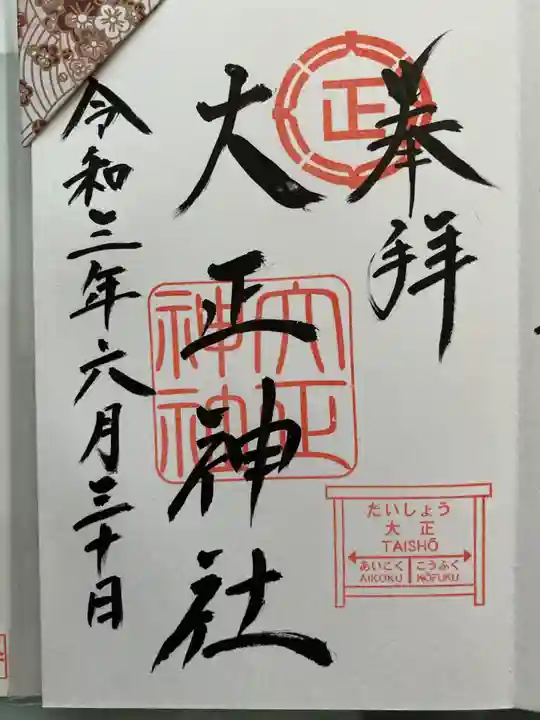 奉拝
正
大正神社
大正
神社
令和三年六月三十日
だいしょう
大正
TAISHŌ
あいこく
AIKOKU
こうふく
KŌFUKU